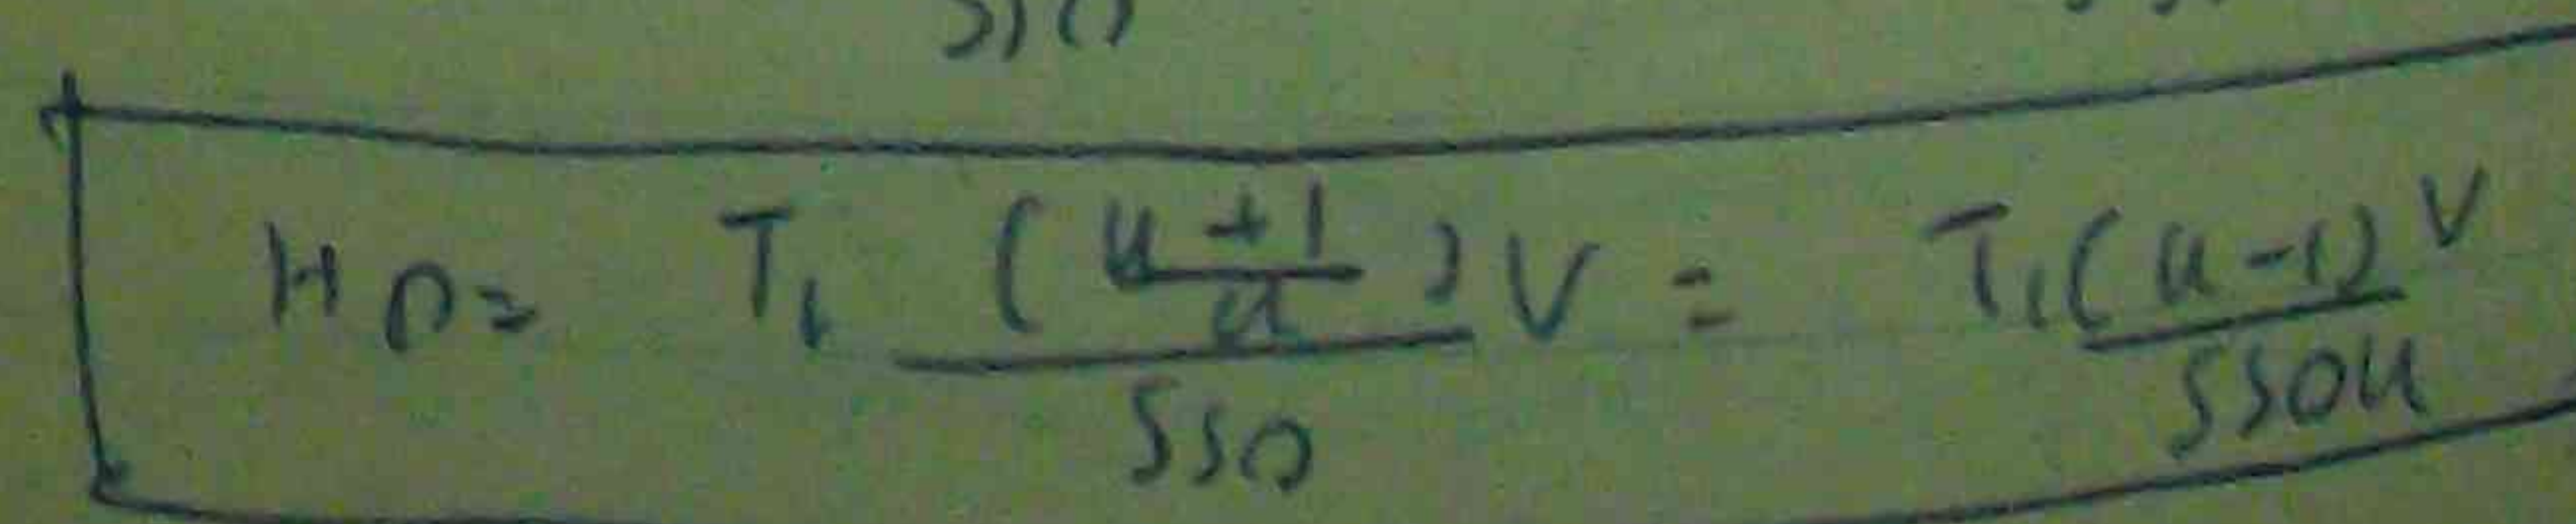 HP = T₁ ((u+1)/u) V / 550 = T₁(u-1) V / 550u